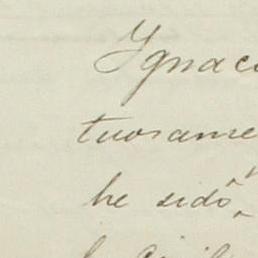 Ygnaci
tuosame
he sidô